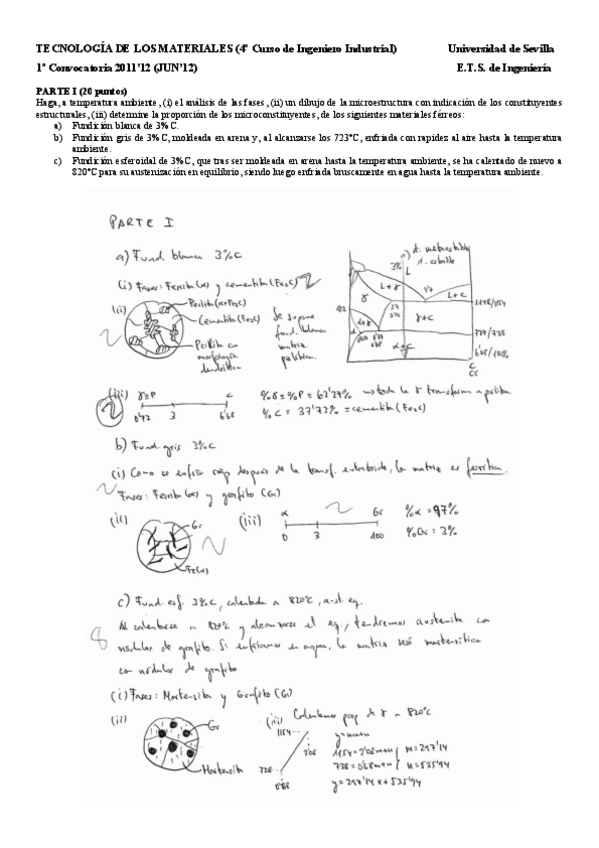 TECNOLOGÍA DE LOS MATERIALES (4º Curso de Ingeniero Industrial) Universidad de Sevilla
1ª Convocatoria 2011'12 (JUN'12) E.T.S. de Ingeniería
PARTE I (20 puntos)
Haga, a temperatura ambiente, (i) el análisis de las fases, (ii) un dibujo de la microestructura con indicación de los constituyentes
estructurales, (iii) determine la proporción de los microconstituyentes, de los siguientes materiales férreos:
a) Fundición blanca de 3% C.
b) Fundición gris de 3% C, moldeada en arena y, al alcanzarse los 723°C, enfriada con rapidez al aire hasta la temperatura
ambiente.
c) Fundición esferoidal de 3%C, que tras ser moldeada en arena hasta la temperatura ambiente, se ha calentado de nuevo a
820°C para su austenización en equilibrio, siendo luego enfriada bruscamente en agua hasta la temperatura ambiente.
PARTE I
a) Fund. blanca 3%C
(i) Fases: Ferrita (α) y cementita (Fe3C)
(ii)
Perlita (α+Fe3C)
Cementita (Fe3C)
Perlita con
morfología
dendrítica
Se supone
fund. blanca
matriz
perlítica.
3%
d. metaestable
d. estable
L
L+γ
4'3
L+C
γ
1148/1154
γ+C
727/738
α+C
6'68/100%
C
Gr
(iii) γ=P C
0'77 3 6'68
%γ = %P = 62'27% toda la γ transforma a perlita
%C = 37'73% = cementita (Fe3C)
b) Fund. gris 3%C
(i) Como se enfría ráp después de la transf. eutectoide, la matriz es ferrítica.
Fases: Ferrita (α) y grafito (Gr)
(ii)
Gr
Fe(α)
(iii) α Gr
0 3 100
%α = 97%
%Gr = 3%
c) Fund. esf. 3%C, calentada a 820ºC, aust. eq.
Al calentarse a 820ºC y alcanzarse el eq., tendremos austenita con
nódulos de grafito. Si enfriamos en agua, la matriz será martensítica
con nódulos de grafito
8
(i) Fases: Martensita y Grafito (Gr)
(ii)
Gr
Martensita
(iii) Calculamos prop de γ a 820ºC
1154
2'08
738
0'68
y=mx+n
1154=2'08m+n
738=0'68m+n
m=297'14
n=535'94
y=297'14x+535'94